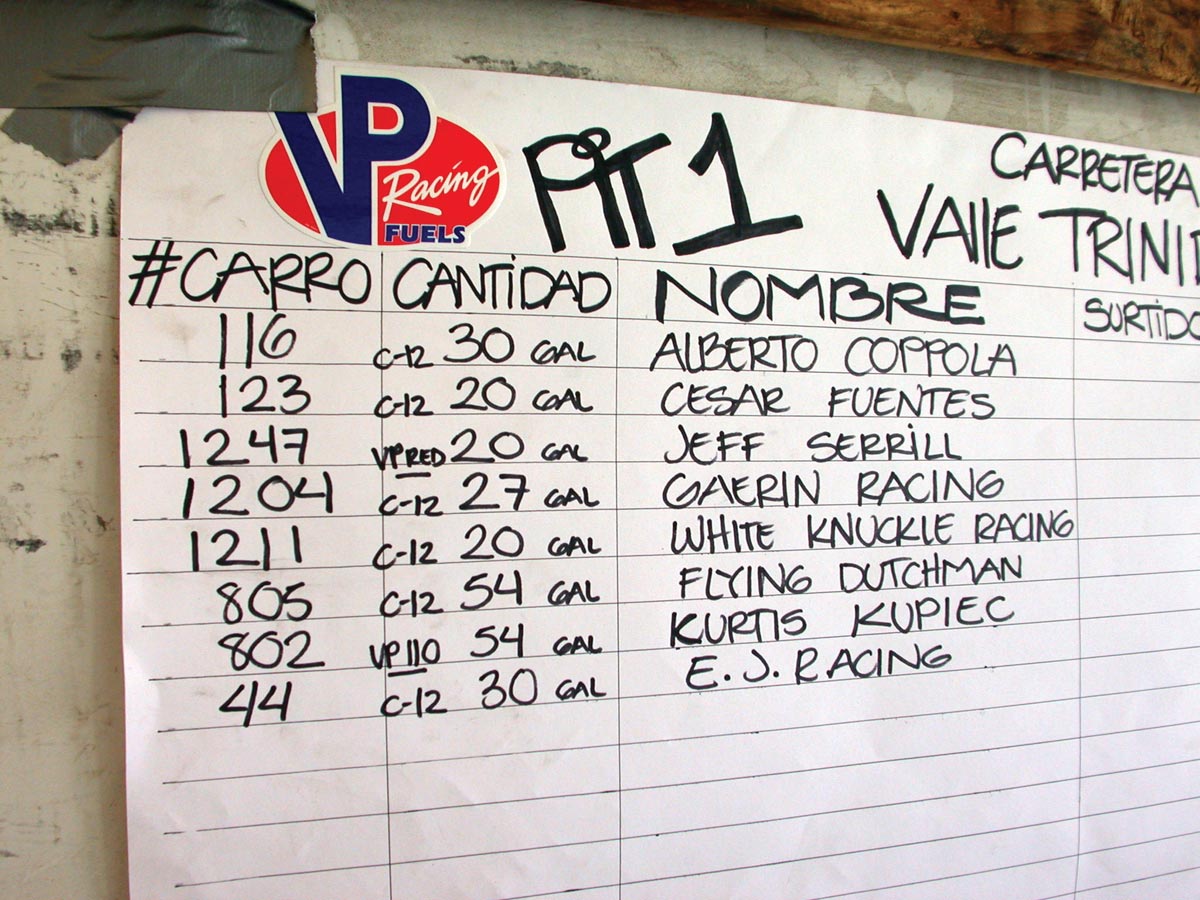 VP Racing FUELS
PIT 1
CARRETERA
VALLE TRINID
#CARRO CANTIDAD NOMBRE SURTIDO
116 C-12 30 GAL ALBERTO COPPOLA
123 C-12 20 GAL CESAR FUENTES
1247 VP RED 20 GAL JEFF SERRILL
1204 C-12 27 GAL GAERIN RACING
1211 C-12 20 GAL WHITE KNUCKLE RACING
805 C-12 54 GAL FLYING DUTCHMAN
802 VP 110 54 GAL KURTIS KUPIEC
44 C-12 30 GAL E.J. RACING